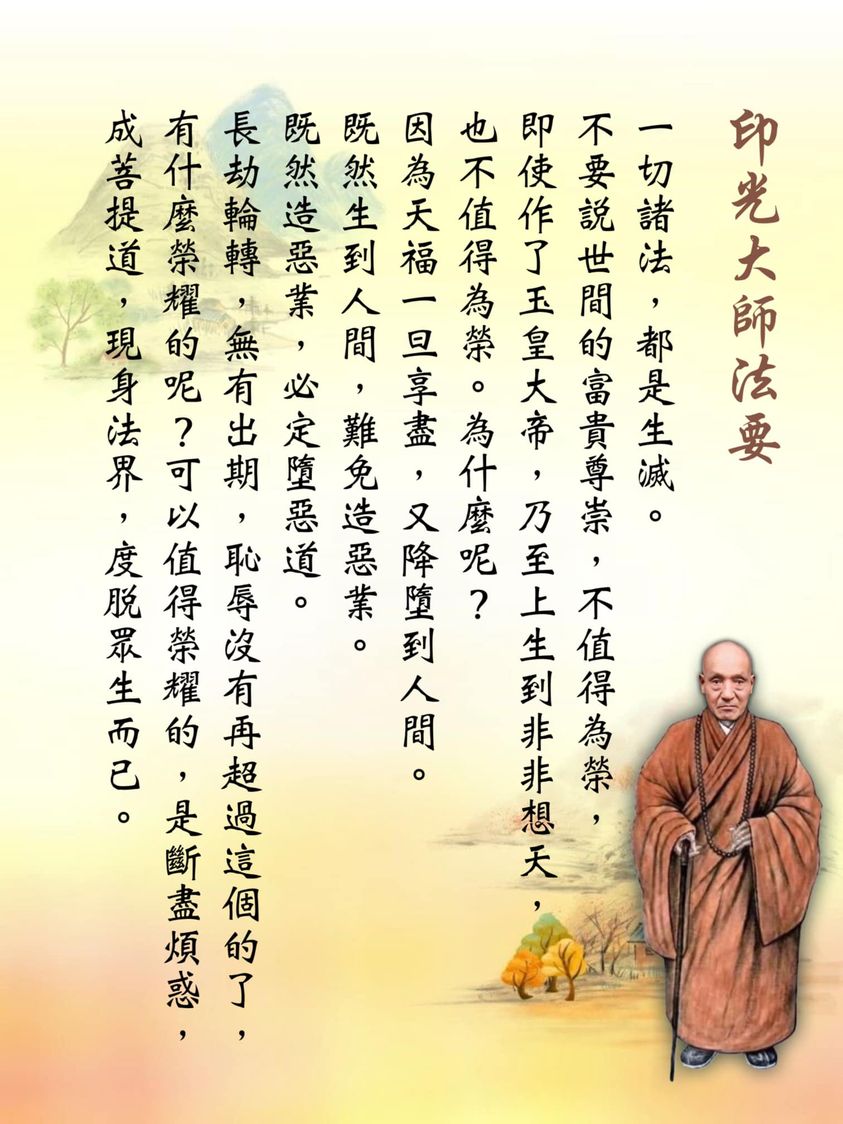 印光大師法要
一切諸法，都是生滅。
不要說世間的富貴尊崇，不值得為榮，
即使作了玉皇大帝，乃至上生到非非想天，
也不值得為榮。為什麼呢？
因為天福一旦享盡，又降墮到人間。
既然生到人間，難免造惡業。
既然造惡業，必定墮惡道。
長劫輪轉，無有出期，恥辱沒有再超過這個的了，
有什麼榮耀的呢？可以值得榮耀的，是斷盡煩惑，
成菩提道，現身法界，度脫眾生而已。